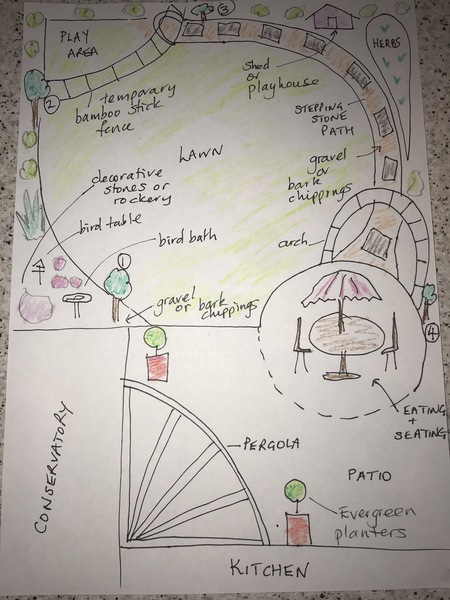 ③
PLAY
AREA
HERBS
Shed
or
playhouse
②
temporary
bamboo stick
fence
STEPPING
STONE
PATH
LAWN
gravel
or
bark
chippings
decorative
stones or
rockery
bird table
bird bath
arch
①
gravel or bark
chippings
④
EATING
+
SEATING
PERGOLA
CONSERVATORY
PATIO
Evergreen
planters
KITCHEN